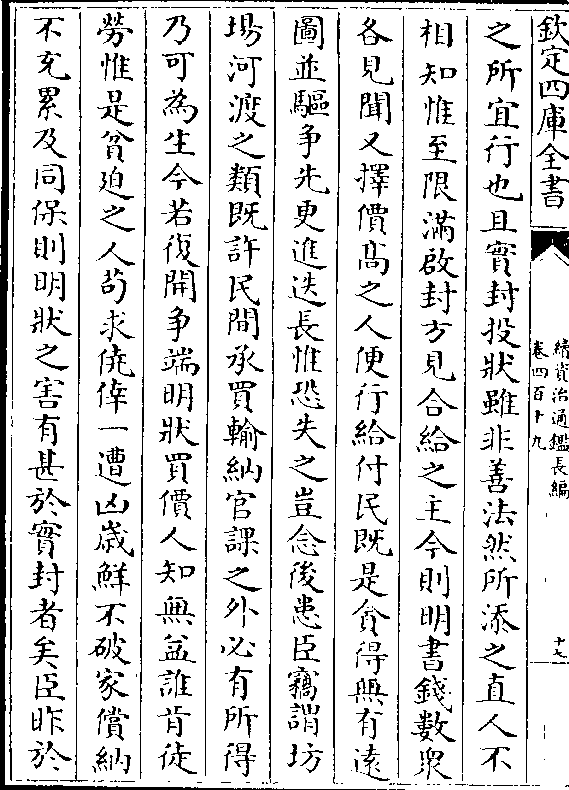 欽定四庫全書
續資治通鑑長編
卷四百十九
十七
之所宜行也且實封投狀雖非善法然所添之直人不
相知惟至限滿啟封方見合給之主今則明書錢數衆
各見聞又擇價髙之人便行給付民既是貪得無有逺
圖並驅争先更進迭長惟恐失之豈念後患臣竊謂坊
場河渡之類既許民間承買輸納官課之外必有所得
乃可為生今若復開争端明狀買價人知無益誰肯徒
勞惟是貧廹之人茍求僥倖一遭凶歲鮮不破家償納
不充累及同保則明狀之害有甚於實封者矣臣昨於